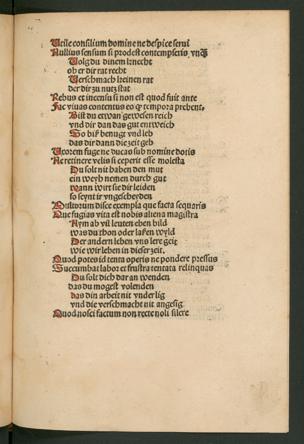 Utile consilium domine ne despice serui
Nullius sensum si prodest contempseris vnꝙ̃
Volg du dinem knecht
ob er dir rat recht
Verschmach keinen rat
der dir zu nutz stat
Rebus et in censu si non est quod fuit ante
Fac viuas contentus eo ꝙ tempora prebent.
Bist du etwan gewesen reich
vnd dir dan das gut entweich
So biß benugt vnd leb
das dir dann die zeit geb
Uxorem fuge ne ducas sub nomine dotis
Nec retinere velis si ceperit esse molesta
Du solt nit haben den mut
ein weyb nemen durch gut
wann wirt sie dir leiden
so seynt ir vngescheyden
Multorum disce exempla que facta sequaris
Que fugias vita est nobis aliena magistra
Nym ab vil leuten eben bild
was du thon oder laßen wyld
Der andern leben vns lere geit
wie wir leben in dieser zeit.
Quod potes id tenta operis ne pondere pressus
Succumbat labor et frustra tentata relinquas
Du solt dich dar an wenden
das du mogest volenden
das din arbeit nit vnderlig
vnd die verschmacht nit angesig
Quod nosci factum non recte noli silere